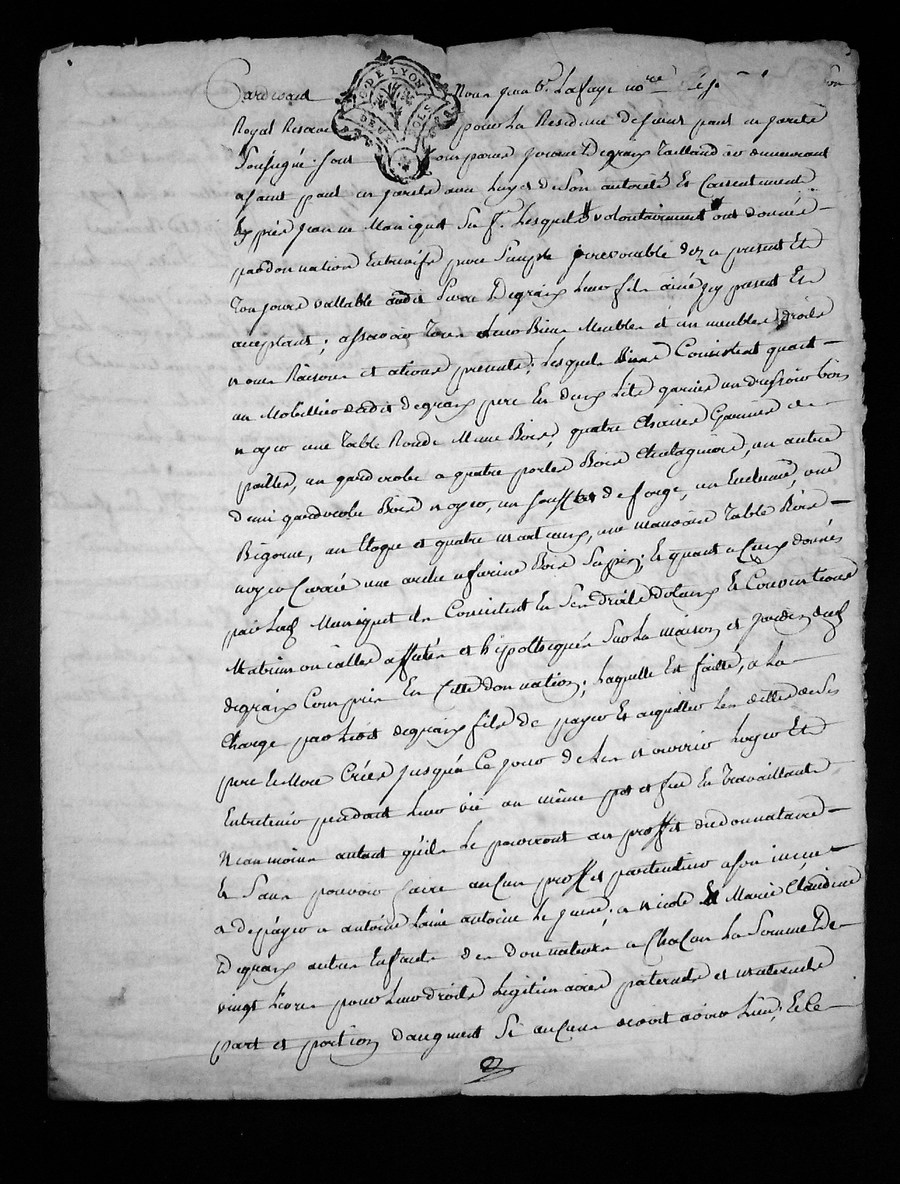 G. DE LYON
DEUX SOLS
Pardevant Nous Lafaye no.re
Royal Reservé pour La Residence de St just en
soussigné. fut comparu Degraix Taillandier demeurant
a St just en avec luy et de Son autorité Et Consentement
Exprès jeanne Maniquet Sa f.e Lesquels volontairement ont donnés
par donnation Entrevifs pure Simple jrrevocable dez a present Et
Toujours vallable audit Degraix Leur fils ainé jcy present Et
acceptant; assavoir Tous Leurs Biens Meubles et immeubles droits
noms Raisons et actions presents; Lesquels Biens Consistent quant
au Mobillier dudit degraix pere En deux Lits garnis un dressoir bois
noyer une Table Ronde Meme Bois, quatre Chaises Garnies de
pailles, un garderobe a quatre portes Bois Chataignier, un autre
demi garderobe Bois noyer, un soufflet de forge, un Enclume, une
Bigorne, un Etoque et quatre marteaux, une mauvaise Table Bois
noyer Carrée une arche a farine Bois Sappin; Et quant a Ceux donnés
par Lad. Maniquet ils Consistent En Ses droits dotaux Et Conventions
Matrimonialles affectés et hipoltequés Sur La maison et jardin dud.
degraix Compris En Cette donnation; Laquelle Est faitte, a La
Charge par Ledit degraix fils de payer Et acquitter Les dettes de Ses
pere Et Mere Crées jusques a Ce jour de Les Nourrir Loger Et
Entretenir pendant Leur vie au même pot et feu En Travaillants
Neanmoins autant qu'ils Le pourront au proffit du donnataire
Et Sans pouvoir faire aucun proffit particulier
a de payer a antoine Lainé antoine Le jeune, a Nicole Et Marie Claudine
Degraix autres Enfants des donnateurs a Chacun La Somme De
vingt Livres pour Leurs droits Legitimaires paternels et maternels
part et portion d'augment Si aucuns avoir Lieu; Et Ce